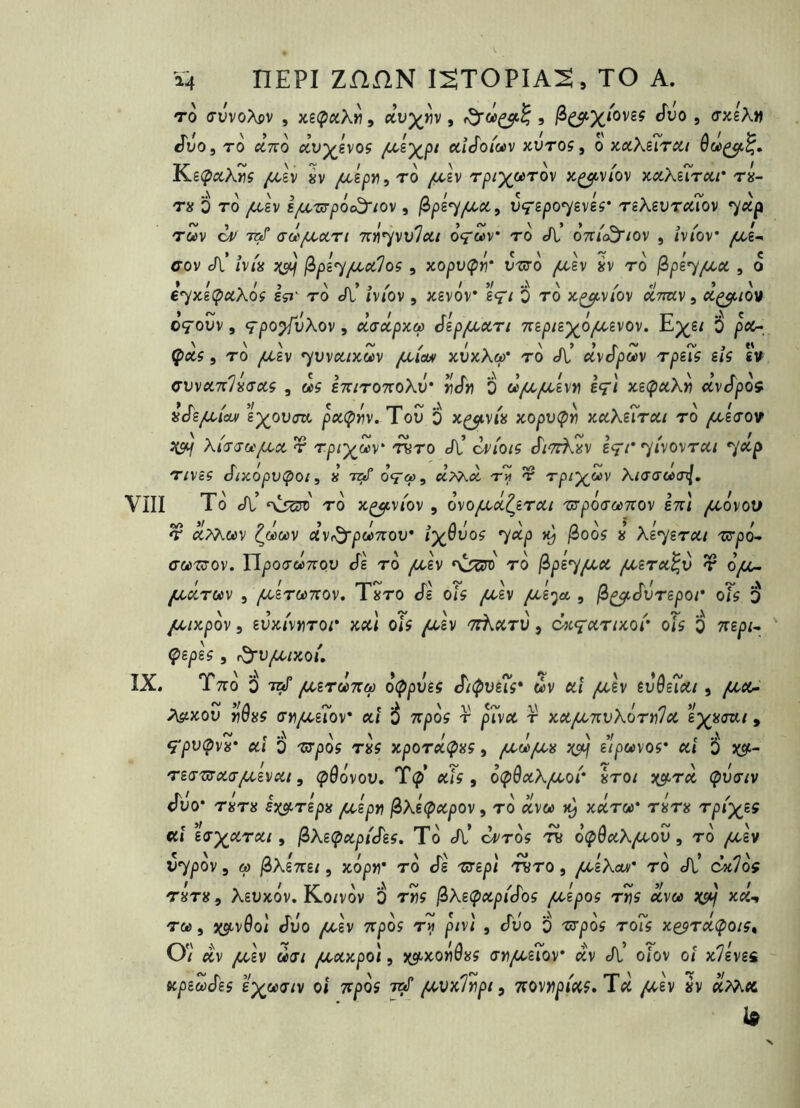 14 ΠΕΡΙ ΖΩΩΝ ΙΣΤΟΡΙΑΣ, ΤΟ Α.
τὸ σύνολον, κεφαλὴ, αὐχὴν, θώραξ, βραχίονες δύο, σκέλη
δύο, τὸ ἀπὸ αὐχένος μέχρι αἰδοίων κύτος, ὃ καλεῖται θώραξ.
Κεφαλῆς μὲν ȣ̓ν μέρη, τὸ μὲν τριχωτὸν κρανίον καλεῖται· τȣ́-
τȣ δὲ τὸ μὲν ἐμπρόσθιον, βρέγμα, ὑστερογενές· τελευταῖον γὰρ
τῶν ἐν τῷ σώματι πήγνυται ὀστῶν· τὸ δ' ὀπίσθιον, ἰνίον· μέ-
σον δ' ἰνίȣ καὶ βρέγματος, κορυφή· ὑπὸ μὲν ȣ̓ν τὸ βρέγμα, ὁ
ἐγκέφαλός ἐστι· τὸ δ' ἰνίον, κενόν· ἔστι δὲ τὸ κρανίον ἅπαν, ἀραιὸν
ὀστοῦν, στρογγύλον, ἀσάρκῳ δέρματι περιεχόμενον. Ἔχει δὲ ῥα-
φὰς, τὸ μὲν γυναικῶν μίαν κύκλῳ· τὸ δ' ἀνδρῶν τρεῖς εἰς ἓν
συναπτȣ́σας, ὡς ἐπιτοπολύ· ἤδη δὲ ὠμμένη ἐστὶ κεφαλὴ ἀνδρὸς
ȣ̓δεμίαν ἔχουσα ῥαφήν. Τοῦ δὲ κρανίȣ κορυφὴ καλεῖται τὸ μέσον
καὶ λίσσωμα τῶν τριχῶν· τȣ͂το δ' ἐνίοις διπλȣ͂ν ἐστι· γίνονται γάρ
τινες δικόρυφοι, ȣ̓ τῷ ὀστῷ, ἀλλὰ τῇ τῶν τριχῶν λισσώσει.
VIII Τὸ δ' ὑπὸ τὸ κρανίον, ὀνομάζεται πρόσωπον ἐπὶ μόνου
τῶν ἄλλων ζώων ἀνθρώπου· ἰχθύος γὰρ καὶ βοὸς ȣ̓ λέγεται πρό-
σωπον. Προσώπου δὲ τὸ μὲν ὑπὸ τὸ βρέγμα μεταξὺ τῶν ὀμ-
μάτων, μέτωπον. Τȣ͂το δὲ οἷς μὲν μέγα, βραδύτεροι· οἷς δὲ
μικρὸν, εὐκίνητοι· καὶ οἷς μὲν πλατὺ, ἐκστατικοί· οἷς δὲ περι-
φερὲς, θυμικοί.
IX. Ὑπὸ δὲ τῷ μετώπῳ ὀφρύες διφυεῖς· ὧν αἱ μὲν εὐθεῖαι, μα-
λακοῦ ἤθȣς σημεῖον· αἱ δὲ πρὸς τὴν ῥῖνα τὴν καμπυλότητα ἔχȣσαι,
στρυφνȣ͂· αἱ δὲ πρὸς τȣ̀ς κροτάφȣς, μώμȣ καὶ εἴρωνος· αἱ δὲ κα-
τεσπασμέναι, φθόνου. Ὑφ' αἷς, ὀφθαλμοί· ȣ̔͂τοι κατὰ φύσιν
δύο· τȣ́τȣ ἑκατέρȣ μέρη βλέφαρον, τὸ ἄνω καὶ κάτω· τȣ́τȣ τρίχες
αἱ ἔσχαται, βλεφαρίδες. Τὸ δ' ἐντὸς τȣ͂ ὀφθαλμοῦ, τὸ μὲν
ὑγρὸν, ᾧ βλέπει, κόρη· τὸ δὲ περὶ τȣ͂το, μέλαν· τὸ δ' ἐκτὸς
τȣ́τȣ, λευκόν. Κοινὸν δὲ τῆς βλεφαρίδος μέρος τῆς ἄνω καὶ κά-
τω, κανθοὶ δύο μὲν πρὸς τῇ ῥινὶ, δύο δὲ πρὸς τοῖς κροτάφοις.
Οἳ ἂν μὲν ὦσι μακροὶ, κακοήθȣς σημεῖον· ἂν δ' οἷον οἱ κτένες
κρεῶδες ἔχωσιν οἱ πρὸς τῷ μυκτῆρι, πονηρίας. Τὰ μὲν ȣ̓ν ἄλλα